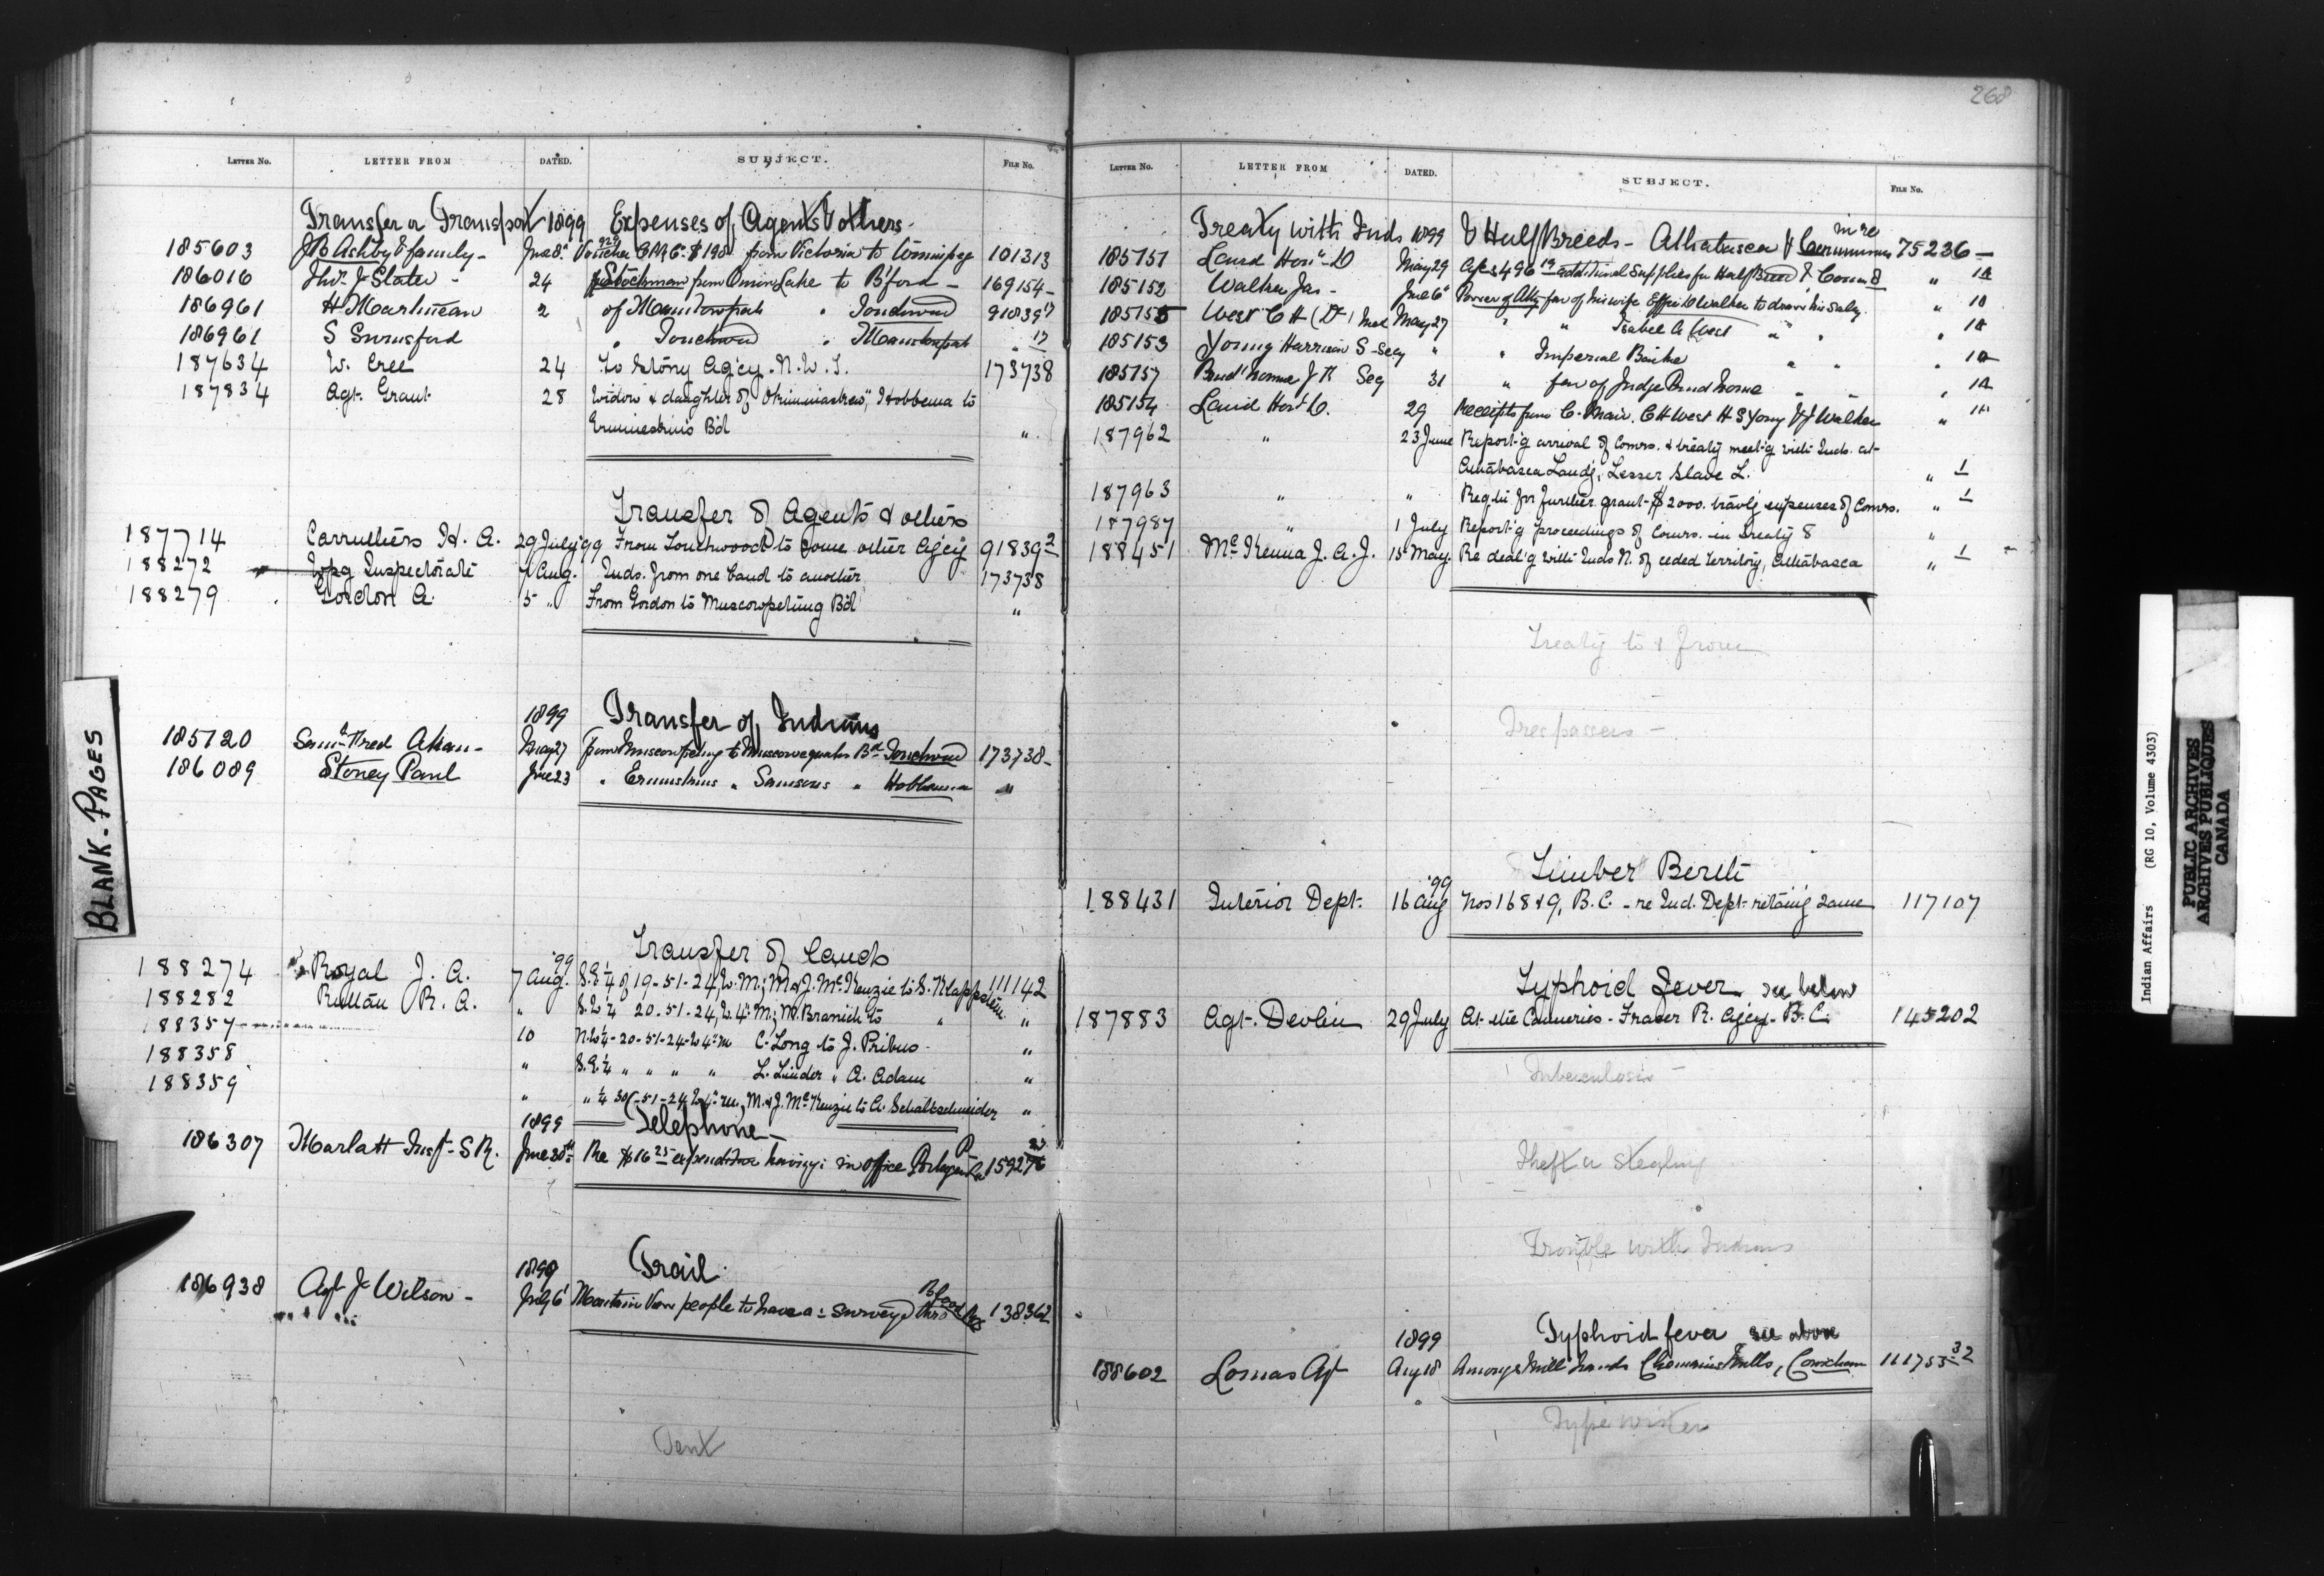 268
LETTER NO. LETTER FROM DATED. SUBJECT. FILE NO.
Transfer or Transport 1899 Expenses of Agents & others-
185603 J B Ashby & family- June 8" Voucher 929 C.P.Ry Co $190 from Victoria to Winnipeg 101313
186016 Thos. J Slater - 24 Stockman from Onion Lake to B'ford - 169154-
186961 H Martineau 2 of Manitowpah " Touchwood 91839 17
186961 S Swinford " Touchwood " Manitowpah " 17
187634 W. Cree 24 To Stony Ag'cy. N.W.T. 173738
187834 Agt. Grant 28 Widow & daughter of Hobbema to
Ermineskin's B'd "
Transfer of Agents & others
187714 Carruthers H. A. 29 July '99 From Touchwood to some other Ag'cy 91839 2
188272 Wpg Inspectorate 7 Aug. Inds. from one band to another 173738
188279 Gordon A. 5 " From Gordon to Muscowpetung B'd "
1899 Transfer of Indians
185720 May 27 from Muscowpetung to Muscowequahn Bd Touchwood 173738-
186089 Stoney Paul June 23 " Ermineskins " Samsons " Hobbema "
Transfer of Lands
188274 Royal J. A. '99 7 Aug. S.E¼ of 19-51-24, W. M; M & J. McKenzie to S. Klappstein 111142
188282 Ruttan R. A. " S.W¼ 20-51-24, W. 4" M; M. Branich to " "
188357
10 N.W¼-20-51-24-W 4" m C. Long to J. Pribus- "
188358 " S.E.¼ " " " " L. Linder " A. Adam "
188359 " " ¼ 30-51-24, W 4" m, M. & J. McKenzie to A. Schaltschneider "
1899 Telephone-
186307 Marlatt Insp- S R. June 30th Re $16 25 expenditure having : in office Portage la P 159276 23
1899 Trail.
186938 Agt J Wilson - July 6 Mountain View people to have a : surveyed thro Blood Res 138362
Tent
LETTER NO. LETTER FROM DATED. SUBJECT. FILE NO.
Treaty with Inds 1899 & Half Breeds - Athabasca & in re 75236-
185151 Laird Hon. D May 29 $496 19 additional supplies for Half Breed & Comm 8 " 1A
185152 Walker Jas - June 6 Power of Atty fav of his wife Effie Walker to draw his saly " 1A
185155 West C H (Dr) May 27 " " Isabel A West " " " 1A
185153 Young Harrison S - Secy " " Imperial Banke " " " 1A
185157 Prud'homme J R Seg 31 " fav of Judge Prud'homme " " " 1A
185154 Laird Hon D. 29 Receipts from C. Mair. C H West H S Young & J Walker " 1A
187962 " 23 June Report'g arrival of Comrs. & treaty meet'g with Inds. at
Athabasca Land'g, Lesser Slave L. " 1
187963 " " Req. for further grant-$2000. trav'lg expenses of Comrs. " 1
187987 " 1 July Report'g proceedings of Comrs. in Treaty 8 "
188451 McKenna J. A. J. 15 May. Re deal'g with Inds N. of ceded territory, Athabasca " 1
Treaty to & from
Trespassers -
Timber Berth
188431 Interior Dept. '99 16 Aug Nos 168 & 9, B.C. - re Ind. Dept. retain'g same 117107
Typhoid Fever see below
187883 Agt. Devlin 29 July At the Canneries - Fraser R. Ag'cy - B.C. 145202
Tuberculosis -
Theft or Stealing
Trouble with Indians
1899 Typhoid fever see above
188602 Lomas Agt Aug 18 Amongst Mill hands Chemainus Mills, Cowichan 111753 32
Typewriter
BLANK. PAGES
Indian Affairs (RG 10, Volume 4303)
PUBLIC ARCHIVES
ARCHIVES PUBLIQUES
CANADA